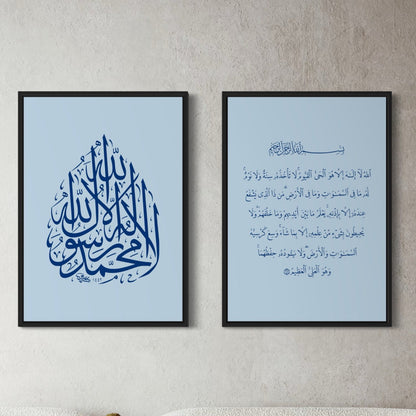 لا إله إلا الله محمد رسول الله
بِسْمِ ٱللَّهِ ٱلرَّحْمَٰنِ ٱلرَّحِيمِ
ٱللَّهُ لَآ إِلَٰهَ إِلَّا هُوَ ٱلْحَىُّ ٱلْقَيُّومُ ۚ لَا تَأْخُذُهُۥ سِنَةٌ وَلَا نَوْمٌ ۚ
لَّهُۥ مَا فِى ٱلسَّمَٰوَٰتِ وَمَا فِى ٱلْأَرْضِ ۗ مَن ذَا ٱلَّذِى يَشْفَعُ
عِندَهُۥٓ إِلَّا بِإِذْنِهِۦ ۚ يَعْلَمُ مَا بَيْنَ أَيْدِيهِمْ وَمَا خَلْفَهُمْ ۖ وَلَا
يُحِيطُونَ بِشَىْءٍ مِّنْ عِلْمِهِۦٓ إِلَّا بِمَا شَآءَ ۚ وَسِعَ كُرْسِيُّهُ
ٱلسَّمَٰوَٰتِ وَٱلْأَرْضَ ۖ وَلَا يَـُٔودُهُۥ حِفْظُهُمَا ۚ
وَهُوَ ٱلْعَلِىُّ ٱلْعَظِيمُ